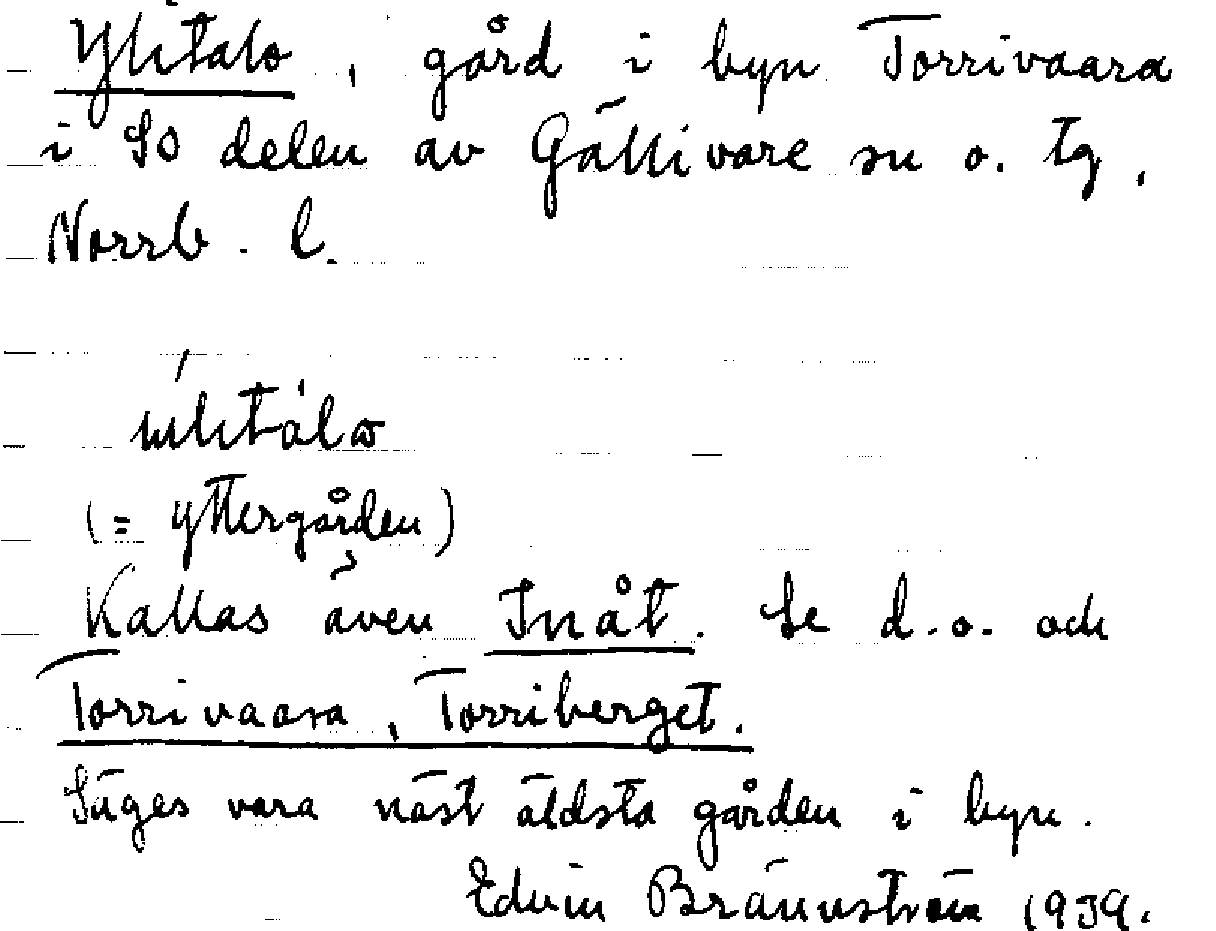 Ylitalo, gård i byn Torrivaara
i SO delen av Gällivare sn o. tg,
Norrb. l.
(= yttergården)
Kallas även Inåt. Se d.o. och
Torrivaara, Torriberget.
Säges vara näst äldsta gården i byn.
Edvin Brännström 1939.